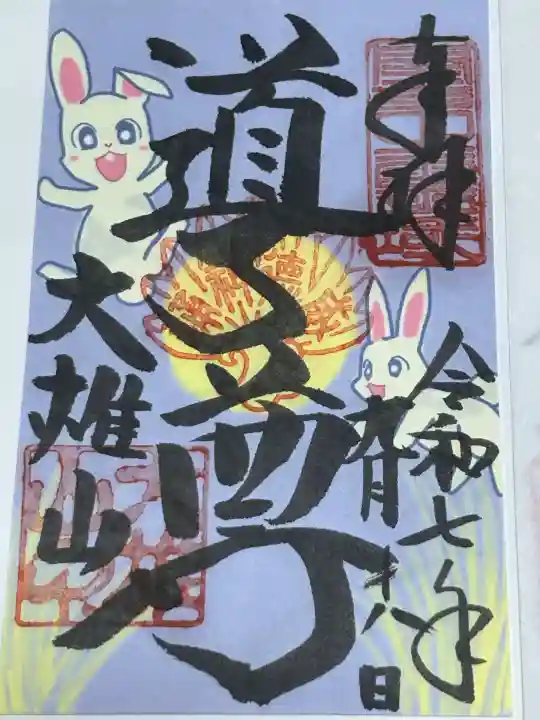 奉拝
令和七年
月十八日
道了尊
大雄山